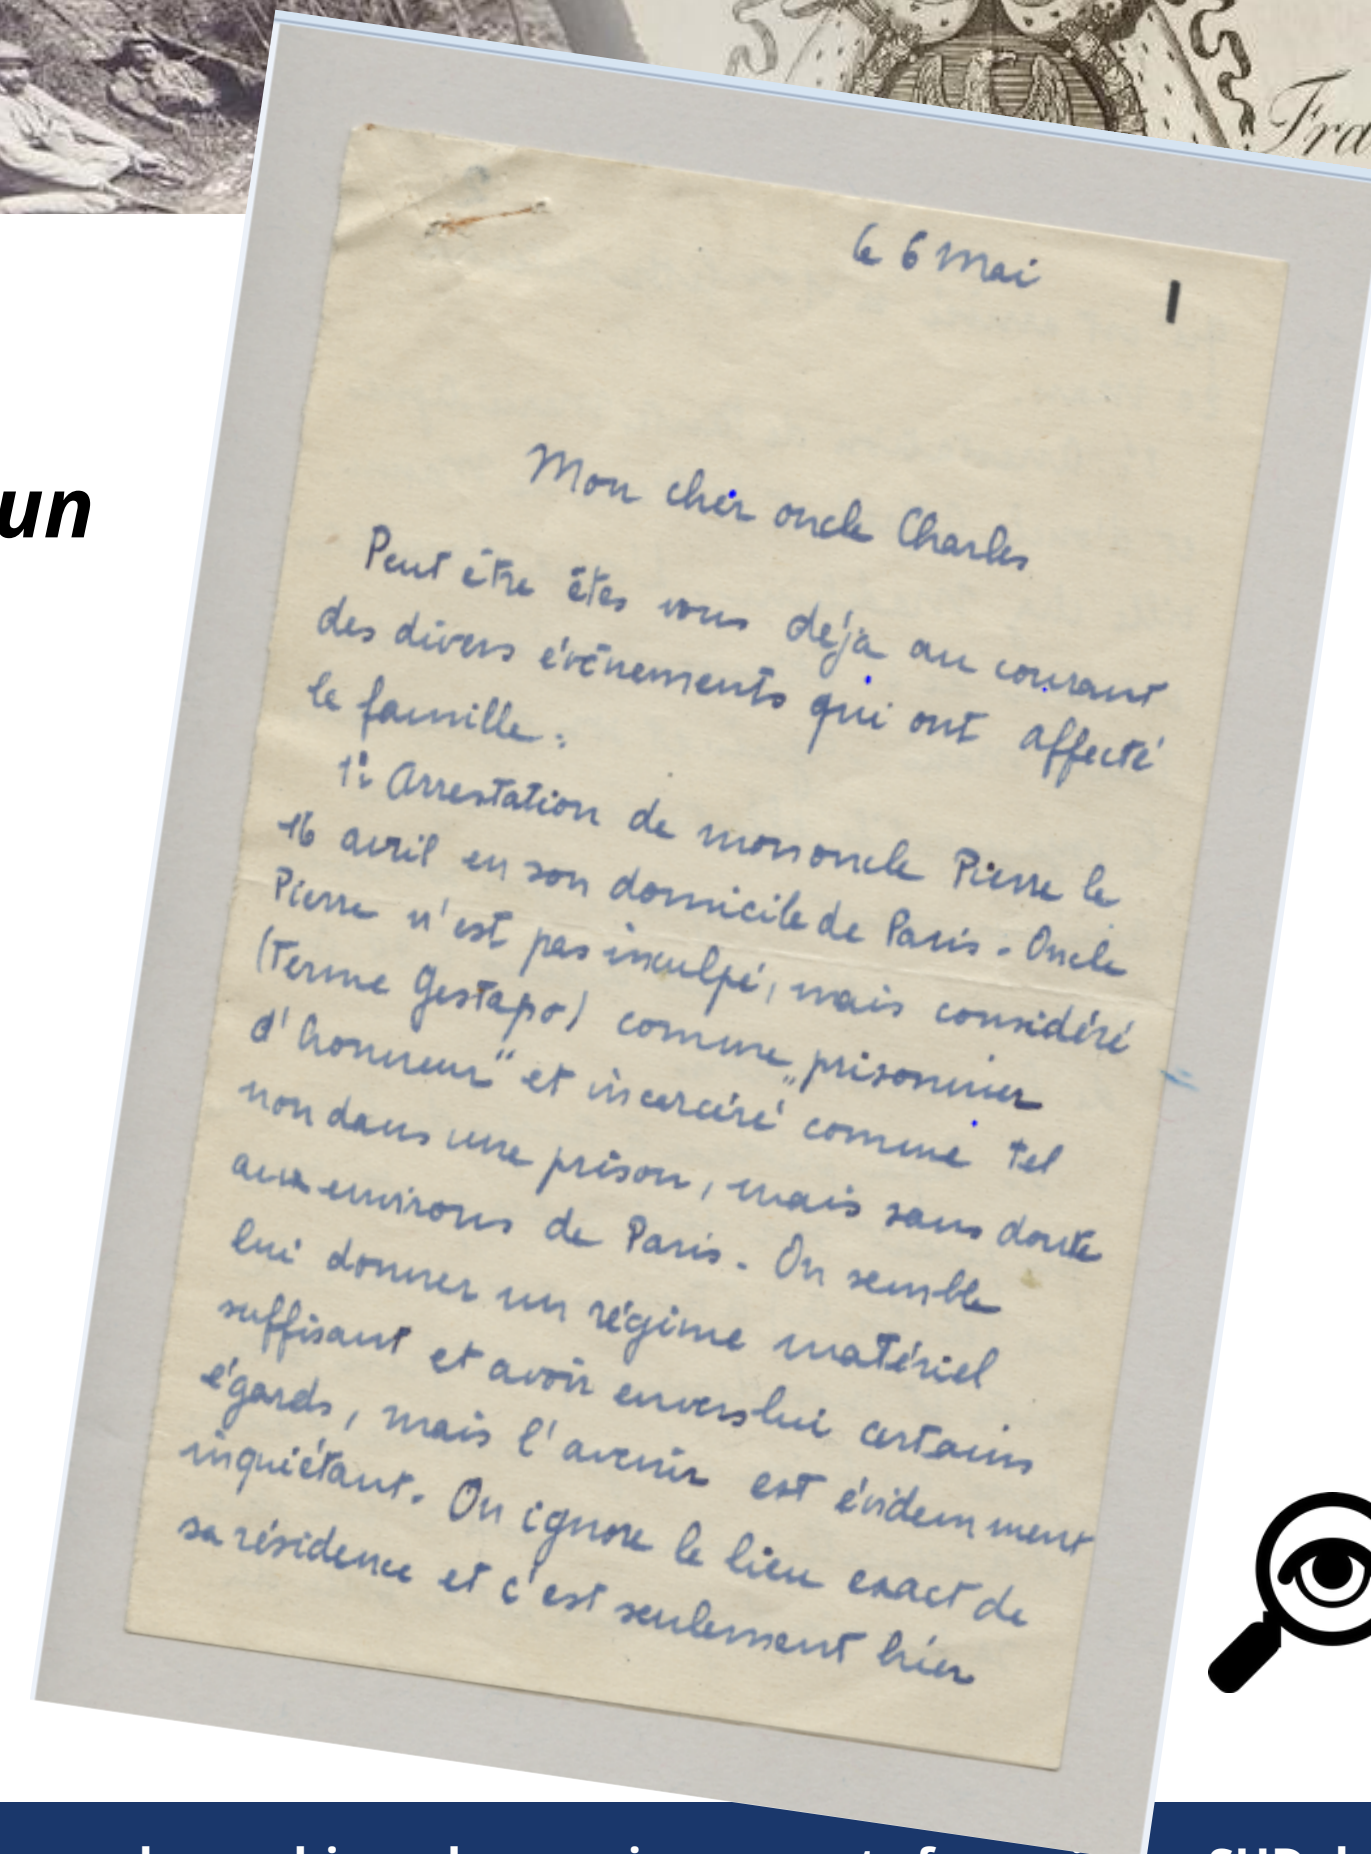 Fra
un
le 6 Mai
Mon cher oncle Charles
Peut être êtes vous déjà au courant
des divers événements qui ont affecté
la famille :
1: Arrestation de mon oncle Pierre le
16 avril en son domicile de Paris - Oncle
Pierre n'est pas inculpé, mais considéré
(Terme Gestapo) comme „prisonnier
d'honneur" et incarcéré comme tel
non dans une prison, mais sans doute
aux environs de Paris - On semble
lui donner un régime matériel
suffisant et avoir envers lui certains
égards, mais l'avenir est évidemment
inquiétant. On ignore le lieu exact de
sa résidence et c'est seulement hier